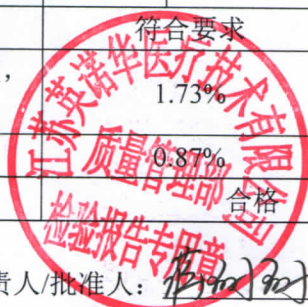 符合要求
1.73%
0.87%
合格
江苏英诺华医疗技术有限公司
质量管理部
检验报告专用章
责人/批准人：